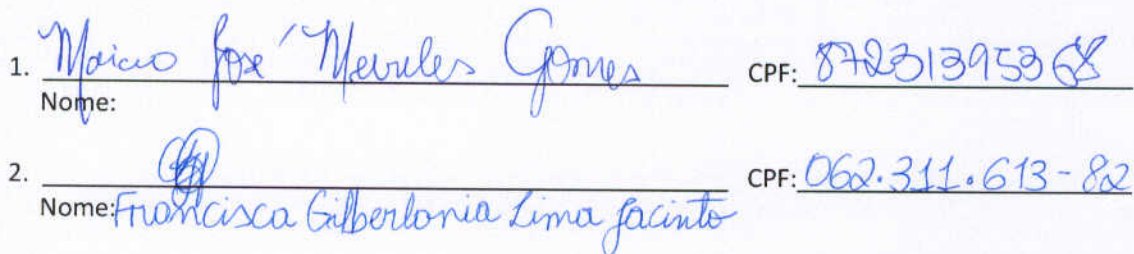 1. Maicio José Meireles Gomes CPF: 87231395368
Nome:
2. CPF: 062.311.613-82
Nome: Francisca Gilberlania Lima Jacinto